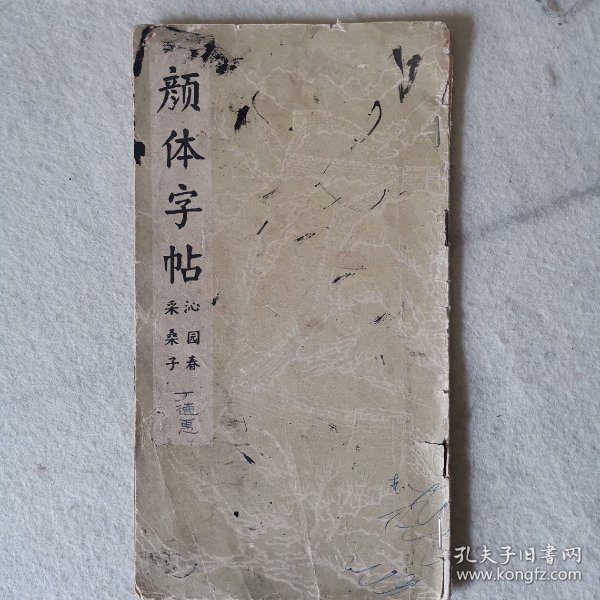 颜体字帖
沁园春
采桑子
丁德惠
孔夫子旧书网
www.kongfz.com